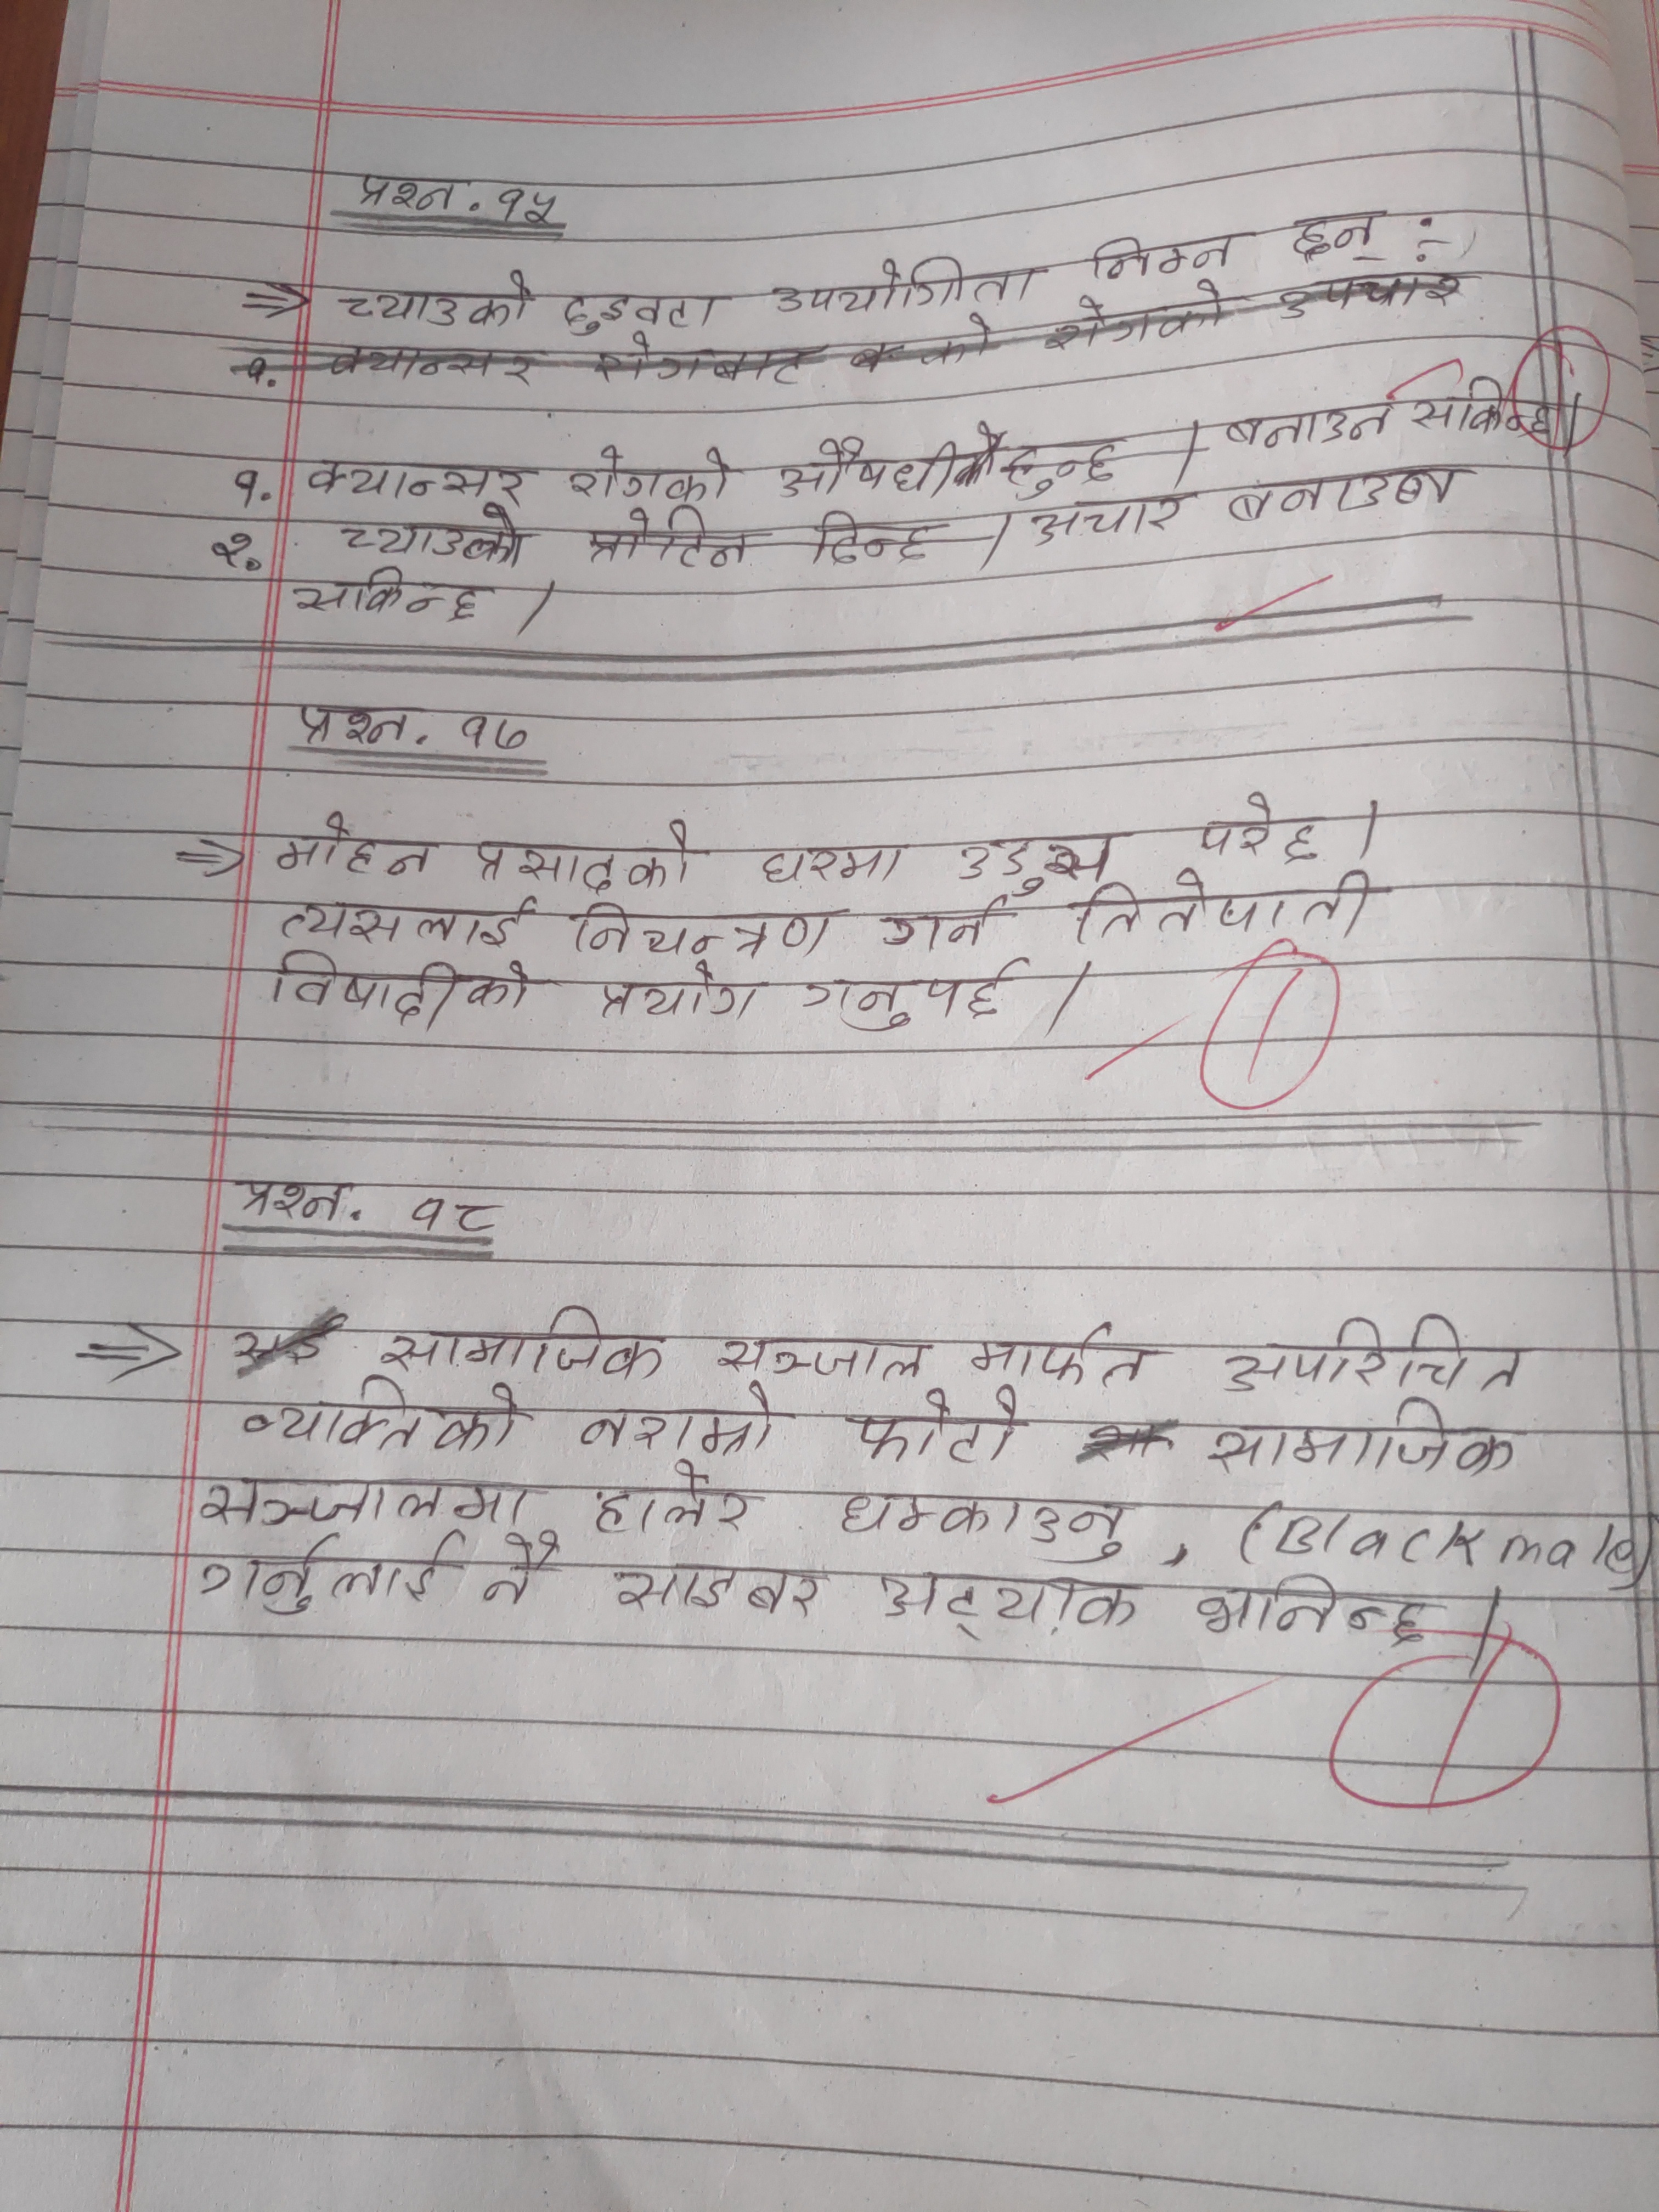 प्रश्न. १५
⇒ च्याउको दुइवटा उपयोगिता निम्न छन् :-
१. क्यान्सर रोगबाट को रोगको उपचार
१. क्यान्सर रोगको औषधी हुन्छ । बनाउन सकिन्छ ।
२. च्याउको प्रोटिन दिन्छ । अचार बनाउन
सकिन्छ ।
प्रश्न. १७
⇒ मोहन प्रसादको घरमा उडुस परेछ ।
त्यसलाई नियन्त्रण गर्न तितेपाती
विषादीको प्रयोग गनुपर्छ ।
प्रश्न. १८
⇒ सामाजिक सञ्जाल मार्फत अपरिचित
व्यक्तिको नराम्रो फोटो सामाजिक
सञ्जालमा हालेर धम्काउनु, (Blackmale)
गर्नुलाई नै साइबर अट्याक भनिन्छ ।